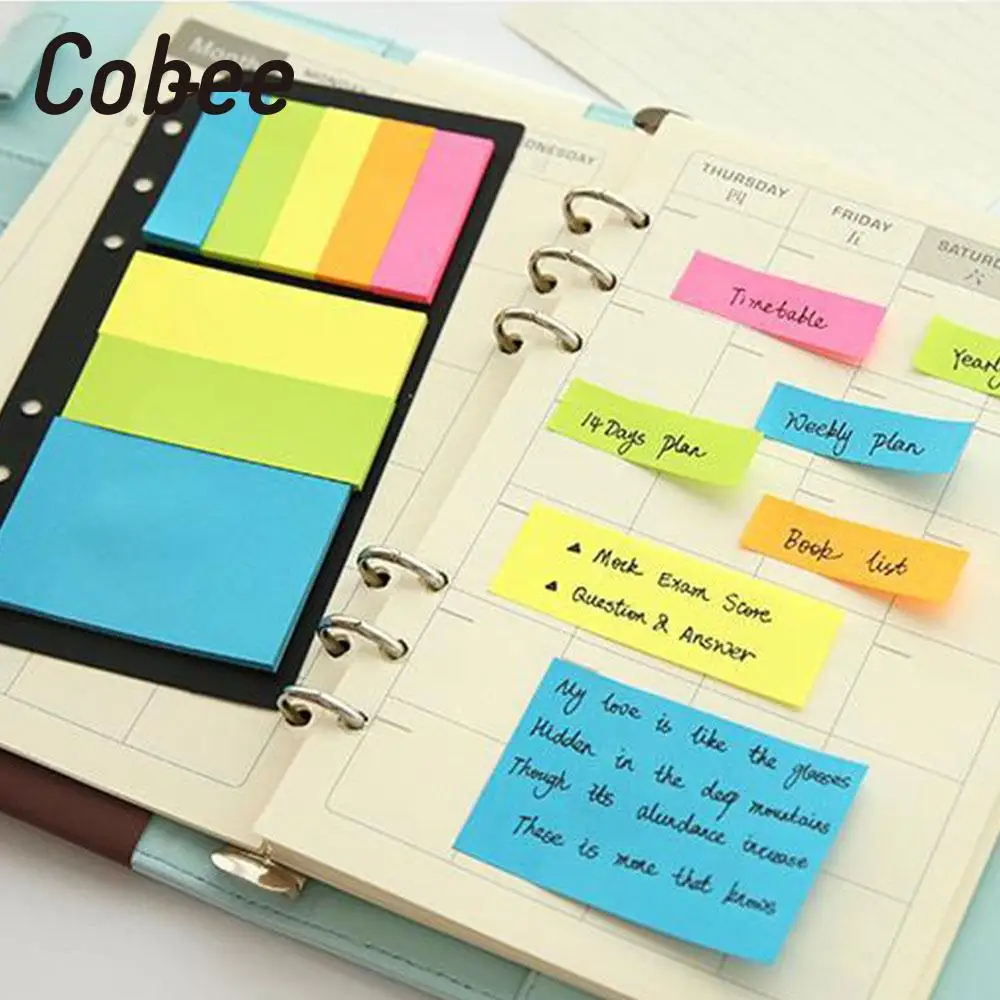 Cobee
MONDAY
THURSDAY
四
FRIDAY
五
六
Timetable
14 Days plan
Weekly plan
Book list
▲ Mock Exam Score
▲ Question & Answer
My love is like the glasses
Hidden in the deep mountains
Though its alundance increase
These is none that knows